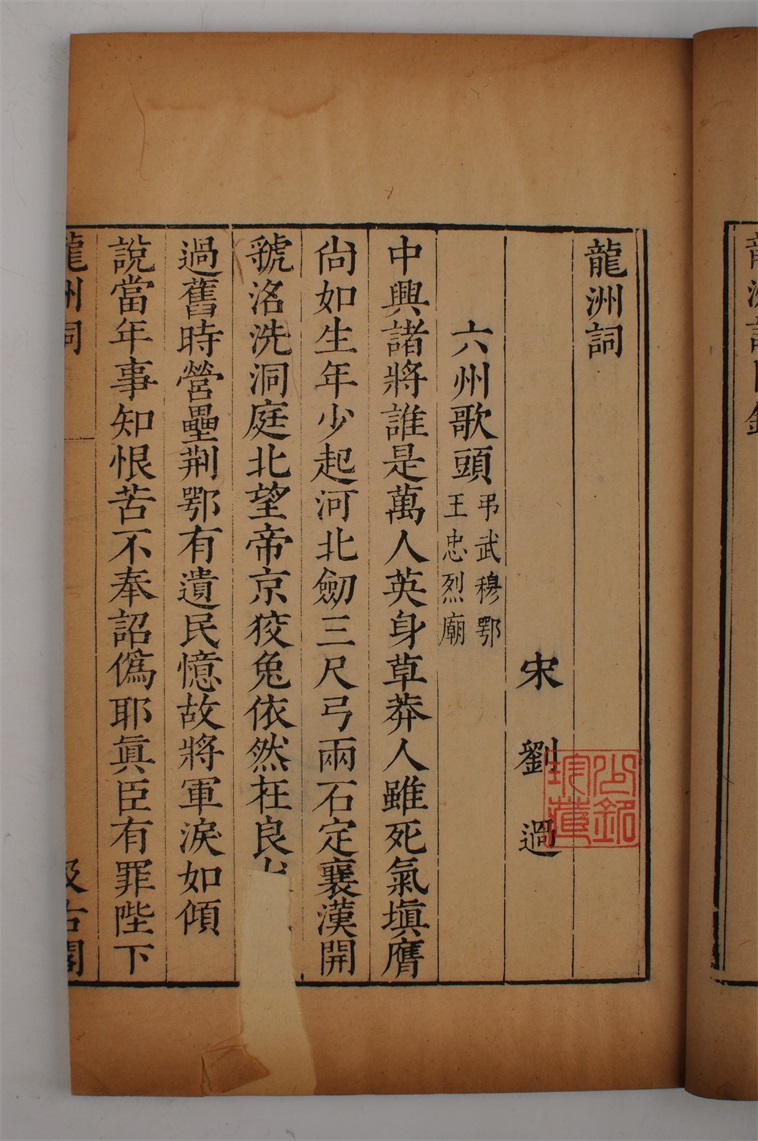 龍洲詞
宋 劉 過
六州歌頭 弔武穆鄂
王忠烈廟
中興諸將誰是萬人英身草莽人雖死氣塡膺
尙如生年少起河北劒三尺弓兩石定襄漢開
虢洛洗洞庭北望帝京狡兔依然在良
過舊時營壘荆鄂有遺民憶故將軍淚如傾
說當年事知恨苦不奉詔僞耶眞臣有罪陛下
龍洲詞 汲古閣